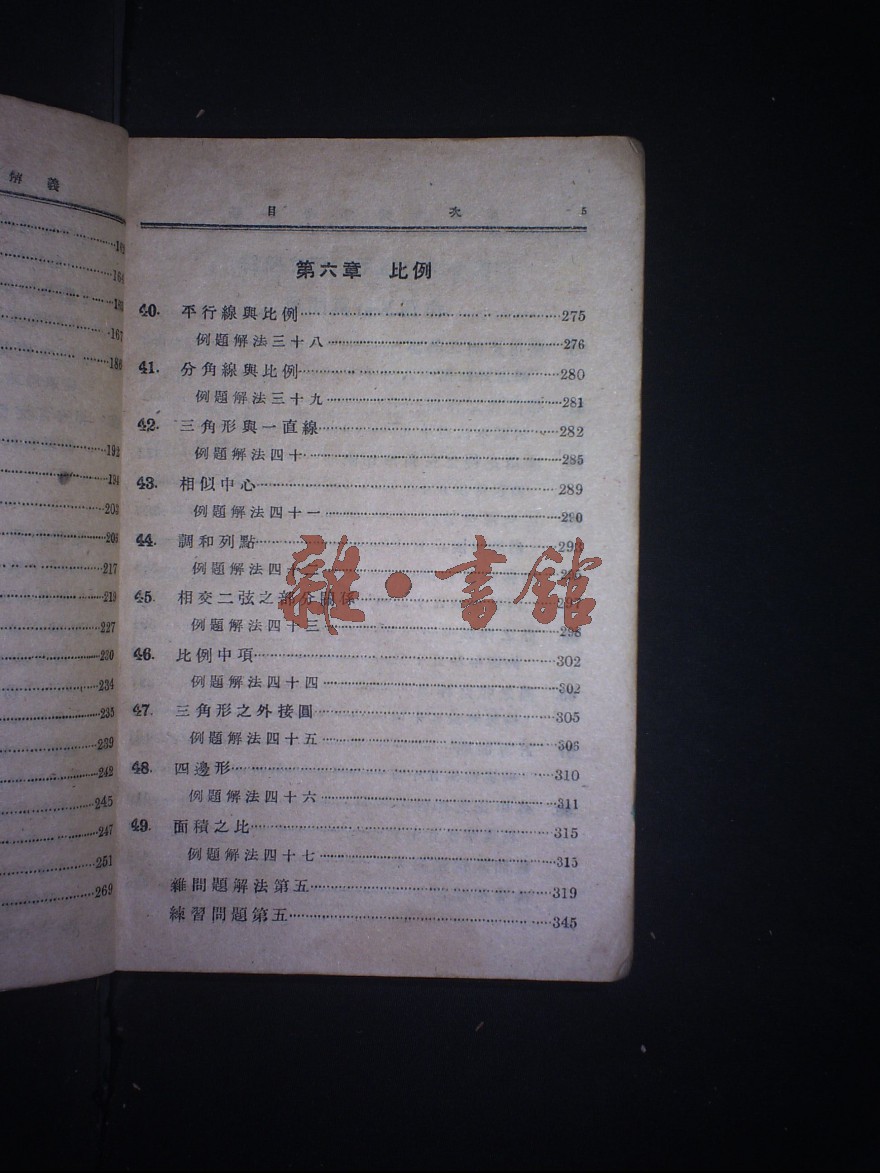 解 義
164
167
186
192
194
203
217
219
227
230
234
235
239
242
245
247
251
269
目 次 5
第六章 比例
40. 平行線與比例 275
例題解法三十八 276
41. 分角線與比例 280
例題解法三十九 281
42. 三角形與一直線 282
例題解法四十 285
43. 相似中心 289
例題解法四十一 290
44. 調和列點
例題解法四十二
雜·書館
45. 相交二弦之部分關係
例題解法四十三 298
46. 比例中項 302
例題解法四十四 302
47. 三角形之外接圓 305
例題解法四十五 306
48. 四邊形 310
例題解法四十六 311
49. 面積之比 315
例題解法四十七 315
雜問題解法第五 319
練習問題第五 345